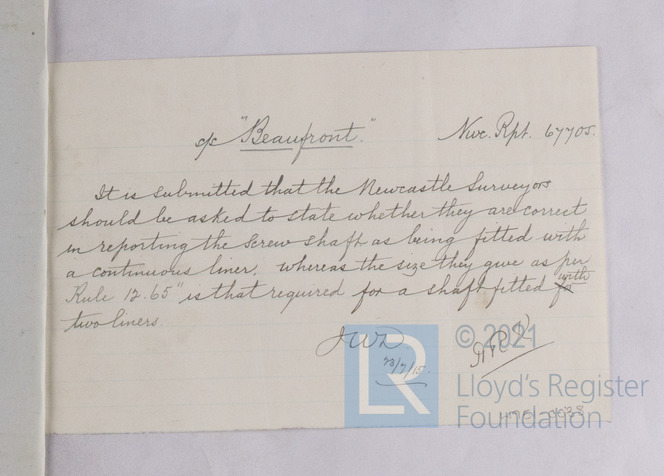 S/S "Beaufront." Nwc. Rpt. 67705.
It is submitted that the Newcastle Surveyors
should be asked to state whether they are correct
in reporting the screw shaft as being fitted with
a continuous liner, whereas the size they give as per
Rule 12.65" is that required for a shaft fitted with
two liners
JWD
23/7/15.
© 2021
LR
Lloyd's Register
Foundation